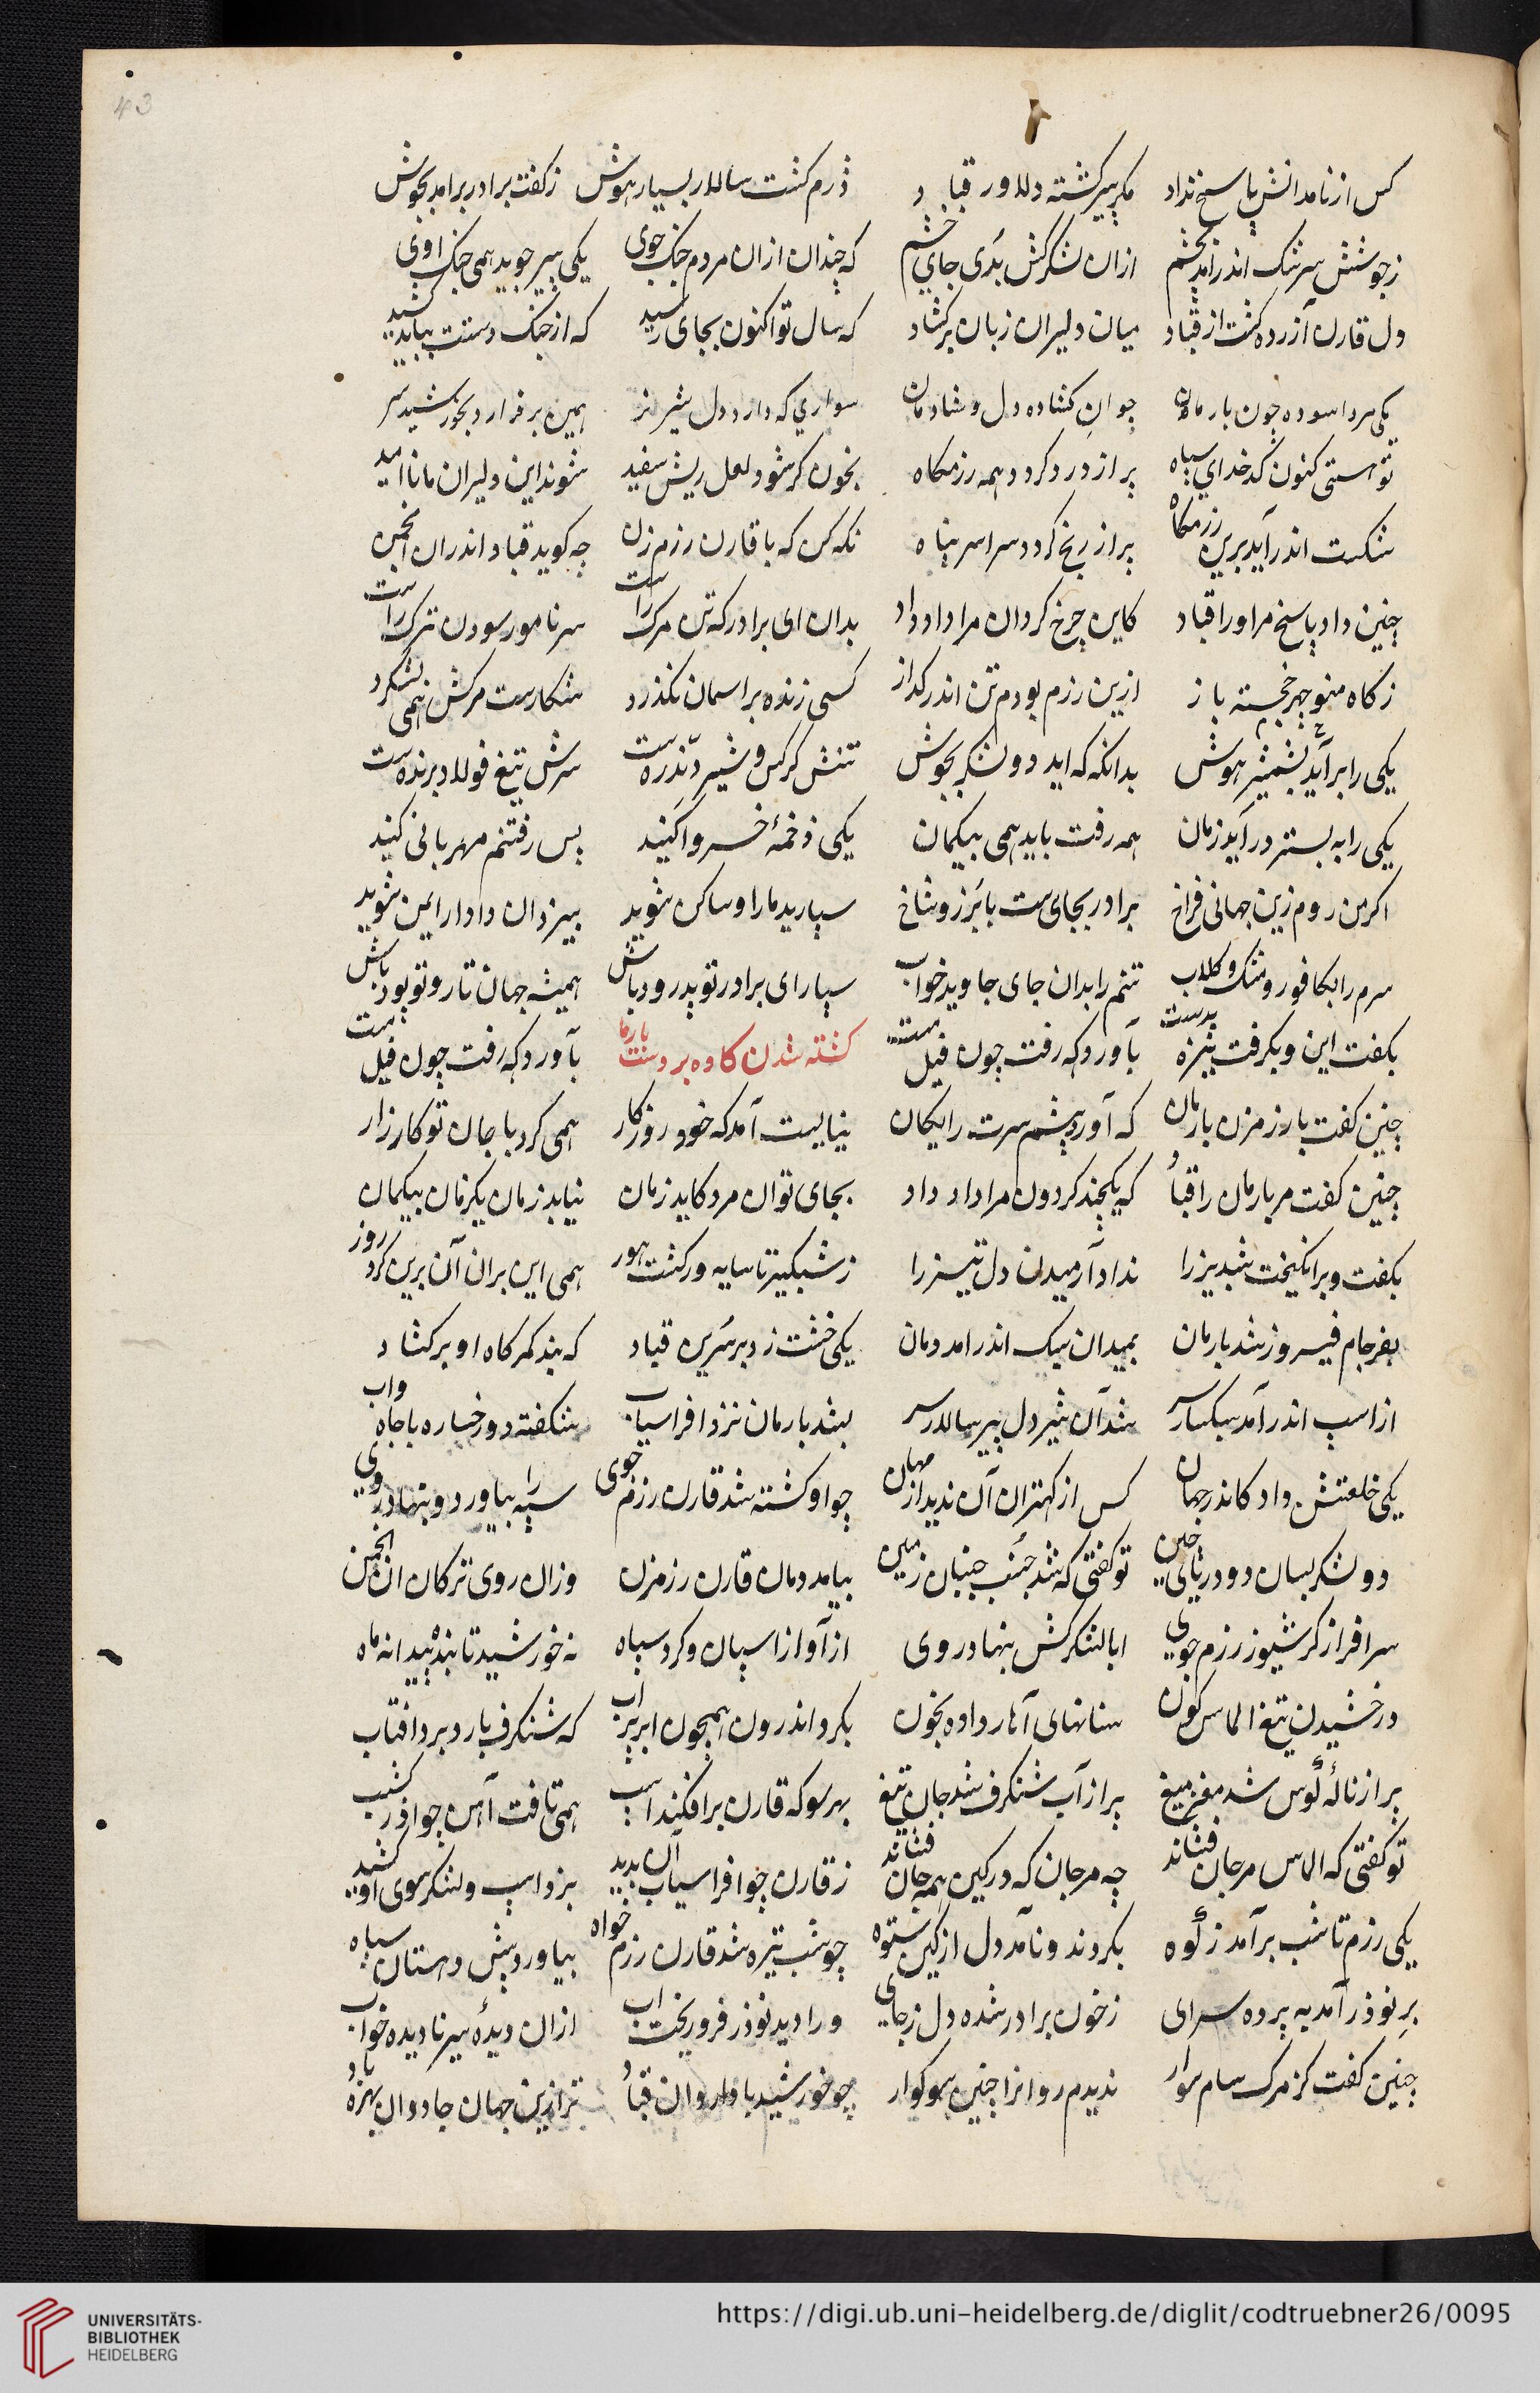 43
کس از نامدانش پاسخ نداد مکر پیر کشته دلاور قباد دژم کشت سالار بسیار هوش ز کفت برادر برامد بجوش
ز جوشش سرشک اندرآمد بچشم ازان لشکر کش بدی جای خشم که چندان ازان مردم جنک جوی یکی پیر جوید همی جنک اوی
دل قارن آزرده کشت از قباد میان دلیران زبان برکشاد که سال تو اکنون بجای رسید که از جنک دستت بباید کشید
یکی مرد اسوده چون بارمان جوان کشاده دل و شادمان سواری که دارد دل شیر نر همین برفرازد بخورشید سر
تو هستی کنون کدخدای سپاه پر از درد کردد همه رزمکاه بخون کر شود لعل ریش سفید شوند این دلیران ما ناامید
شکست اندرآید برین رزمکاه پر از رنج کردد سراسر سپاه نکه کن که با قارن رزم زن چه کوید قباد اندران انجمن
چنین داد پاسخ مر او را قباد کاین چرخ کردان مرا داد داد بدان ای برادر که تن مرک راست سر نامور سودن ترک راست
ز کاه منوچهر خجسته باز ازین رزم بودم تن اندر کداز کسی زنده بر اسمان نکذرد شکارست مرکش همی بشکرد
یکی را برآید بشمشیر هوش بدانکه که اید دو لشکر بجوش تنش کرکس و شیر درنده ست سرش تیغ فولاد برنده ست
یکی را به بستر درآید زمان همه رفت باید همی بیکمان یکی دخمهٔ خسروا کنید پس رفتنم مهربانی کنید
اکر من روم زین جهانی فراخ برادر بجای ست با برز و شاخ سپارید مارا و ساکن شوید بیزدان دادار ایمن شوید
سرم را بکافور و مشک و کلاب تنم را بدان جای جاوید خواب سپار ای برادر تو پدرود باش همیشه جهان تار و تو پود باش
بکفت این و بکرفت نیزه بدست بآوردکه رفت چون فیل مست کشته شدن کاوه بر دست بارما بآوردکه رفت چون فیل مست
چنین کفت با رزم زن بارمان که آورد پیشم سرت رایکان نبایست آمد که خود روزکار همی کرد با جان تو کارزار
چنین کفت مر بارمان را قباد که یکچند کردون مرا داد داد بجای توان مرد کاید زمان نیاید زمان یکزمان بیکمان
بکفت و برانکیخت شبدیز را نداد آرمیدن دل تیز را ز شبکیر تا سایه ور کشت هور همی این بران آن برین کرد روز
بفرجام فیروز شد بارمان بمیدان سبک اندر امد دمان یکی خشت زد بر سرین قباد که بند کمرکاه او برکشاد
از اسب اندر آمد سبکسار سر شد آن شیردل پیر سالار سر بشد بارمان نزد افراسیاب شکفته دو رخساره با جاه و آب
یکی خلعتش داد کاندر جهان کس از کهتران آن ندید از مهان چو او کشته شد قارن رزم جوی سپه را بیاورد و بنهاد روی
دو لشکر بسان دو دریای چین تو کفتی که شد جنب جنبان زمین بیامد دمان قارن رزم زن وزان روی ترکان ان انجمن
سرافراز کرشیوز رزم جوی ابا لشکرش بنهاد روی از آواز اسپان و کرد سپاه نه خورشید تابنده پیدا نه ماه
درخشیدن تیغ الماس کون سنانهای آهار داده بخون بکرد اندرون همچون ابر پر اب که شنکرف بارد برد افتاب
پر از نالهٔ کوس شد مغز میغ پر از آب شنکرف شد جان تیغ بهر سو که قارن برافکند اسب همی تافت آهن چو اذرکشسب
تو کفتی که الماس مرجان فشاند چه مرجان که در کین همه جان فشاند ز قارن چو افراسیاب آن بدید بزد اسب و لشکر سوی او کشید
یکی رزم تا شب برآمد ز کوه بکردند و نامد دل از کین ستوه چو شب تیره شد قارن رزم خواه بیاورد پیش دهستان سپاه
بر نوذر آمد به پرده سرای ز خون برادر شده دل ز جای ورا دید نوذر فروریخت اب ازان دیدهٔ سیر نادیده خواب
چنین کفت کز مرک سام سوار ندیدم روانرا چنین سوکوار چو خورشید بادا روان قباد ترا زین جهان جاودان بهره باد
UNIVERSITÄTS-
BIBLIOTHEK
HEIDELBERG
https://digi.ub.uni-heidelberg.de/diglit/codtruebner26/0095